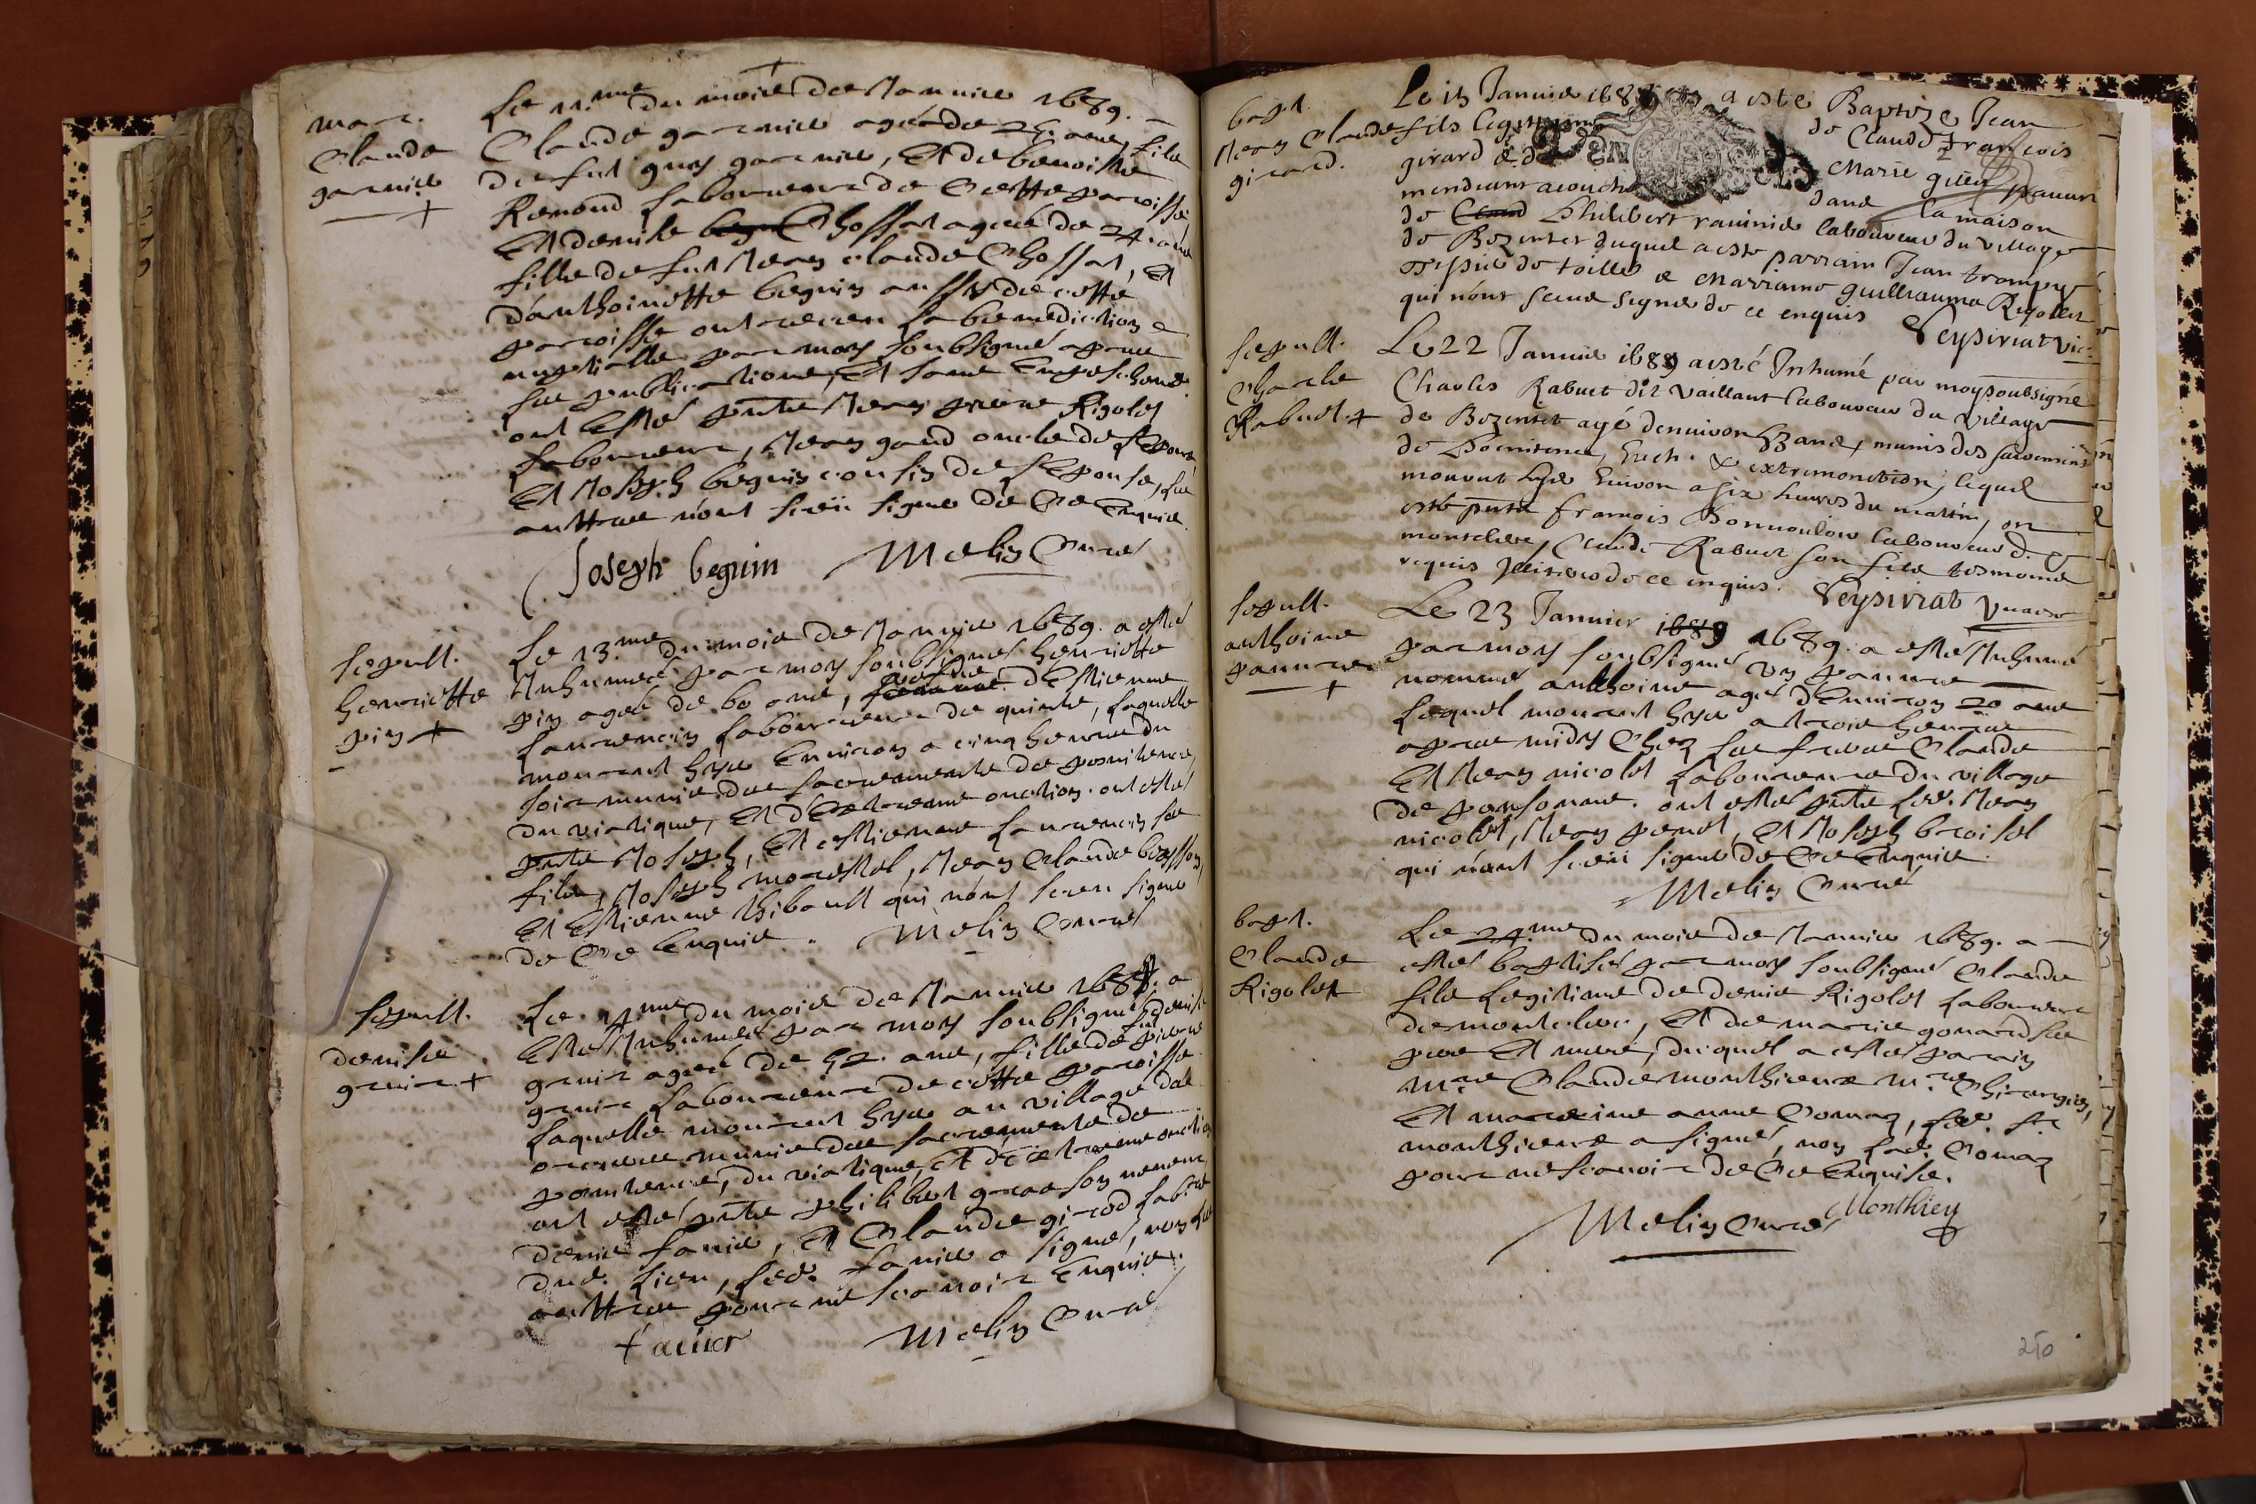 mar.
Claude
garnier
+
Le 11.me du mois de Janvier 1689.
Claude garnier agé de 25. ans, fils
de fut guy garnier, Et de benoiste
Remond laboureur de Cette paroisse
Et denise Chossat agée de 24. ans
fille de fut Jean claude Chossat, Et
d'anthoinette beguin aussy de cette
paroisse ont receu la benediction
nuptialle par moy soubsigné apres
les publications, Et sans Empeschem.
ont Esté pnts Jean pierre Rigolet
laboureur, Jean gand oncle de l'Epoux
Et Joseph beguin cousin de l'Epouse, les
autres n'ont sceu signer de Ce Enquis.
Joseph beguin Melin Curé
sepult.
henriette
pin +
Le 13.me du mois de Janvier 1689. a esté
Inhumée par moy soubsigné henriette
pin agée de 60 ans, d'Estienne
laurencin laboureur de quinte, laquelle
mourut hyer Environ a cinq heures du
soir munie des sacrements de penitence,
du viatique, Et d'Extreme onction. ont esté
pnts Joseph, Et estienne laurencin ses
fils, Joseph morestel, Jean Claude bresson,
Et Estienne thibault qui n'ont sceu signer
de Ce Enquis. Melin Curé
sepult.
denise
gruir +
Le me du mois de Janvier 1689. a
Esté Inhumée par moy soubsigné denise
gruir agée de 52. ans, fille de pierre
gruir laboureur de cette paroisse
laquelle mourut hyer au village da
munie des sacrements de
penitence, du viatique, Et d'extreme onction
ont esté pnts philibert gras son neveu
denis favier, Et Claude girod lab.
dud. lieu, led. favier a signé, non les
autres pour ne scavoir Enquis.
favier Melin Curé
bapt.
Jean Claude
girard.
Le 15 Janvier 1689 a esté Baptize Jean
Claude fils legitime de Claude francois
girard & de Marie pauvres
mendiant acouché dans la maison
de Philibert ravinie laboureur du village
de Bozenter duquel a esté parrain Jean trompy
de toilles & Marriame guillauma Rigolet
qui n'ont sceu signer de ce enquis Peysiriat Vic.
sepult.
Charles
Rabuet +
Le 22 Janvier 1689 a esté Inhumé par moy soubsigné
Charles Rabuet dit Vaillant laboureur du Village
de Bozenter agé denviron 53 ans, munis des sacrements
de Poenitence, Euch. & extremonction, lequel
mourut hyer Environ a six heures du matin, on
esté pnts francois Bonnoulou laboureur de
montcler, Claude Rabuet son fils tesmoins
requis Illiteres de ce enquis. Peysiriat Vicaire
sepult.
anthoine
pauvre
+
Le 23 Janvier 1689 1689. a esté Inhumé
par moy soubsigné Un pauvre
nommé anthoine agé d'Environ 20 ans
lequel mourut hyer a trois heures
apres midy Chez les freres Claude
Et Jean nicolet laboureurs du village
de ponsonne. ont esté pnts led. Jean
nicolet, Jean penet, Et Joseph broiset
qui n'ont sceu signer de Ce Enquis.
Melin Curé
bapt.
Claude
Rigolet
Le 24.me du mois de Janvier 1689. a
esté baptisé par moy soubsigné Claude
fils legitime de denis Rigolet laboureur
de montcler, Et de marie gonard ses
pere Et mere, duquel a esté parain
M.re Claude monthieux m.re Chirurgien,
Et mareine anne Comaz, led. Sr
monthieux a signé, non lad. Comaz
pour ne scavoir de Ce Enquise.
Monthiey
Melin Curé
250